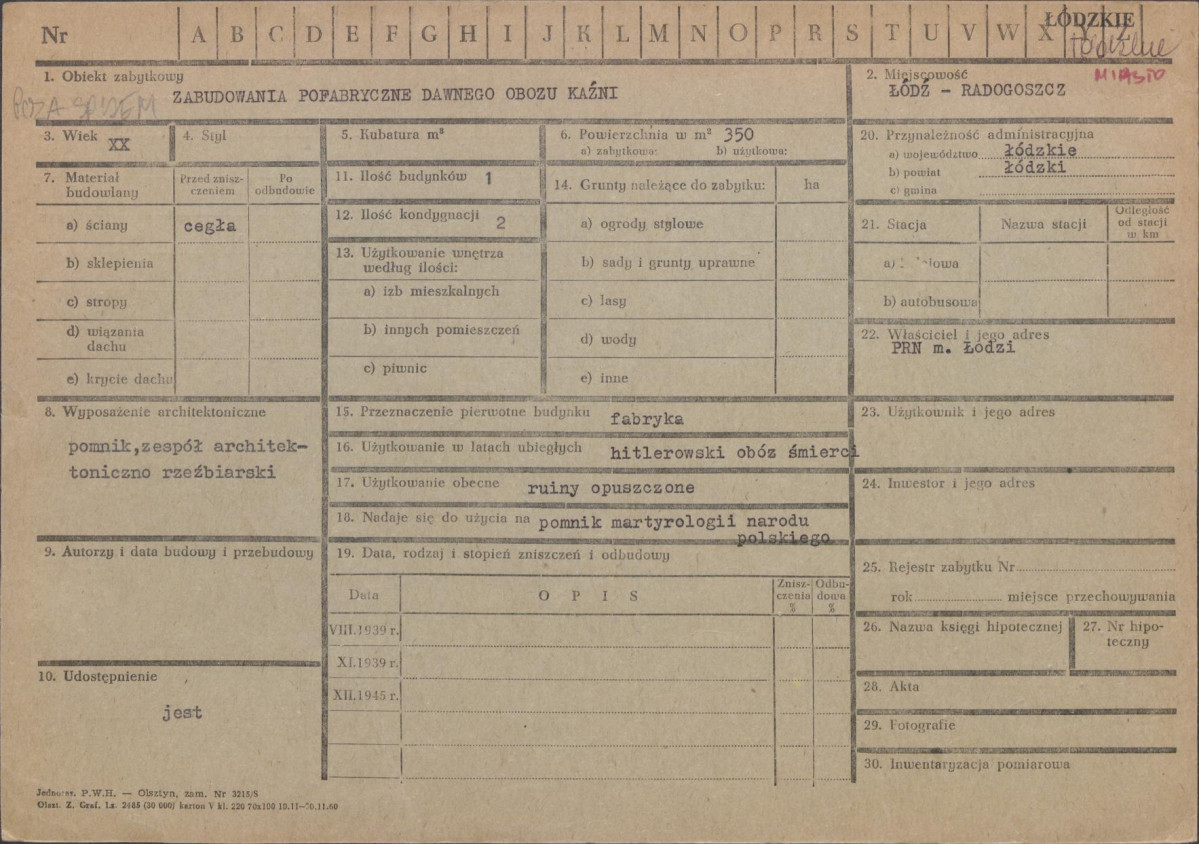 Nr A B C D E F G H I J K L M N O P R S T U V W X Y Z
ŁÓDZKIE
MIASTO
1. Obiekt zabytkowy
POZA SPISEM
ZABUDOWANIA POFABRYCZNE DAWNEGO OBOZU KAŹNI
2. Miejscowość
ŁÓDŹ - RADOGOSZCZ
3. Wiek XX
4. Styl
5. Kubatura m³
6. Powierzchnia w m² 350
a) zabytkowa: b) użytkowa:
7. Materiał budowlany
Przed zniszczeniem
Po odbudowie
a) ściany cegła
b) sklepienia
c) stropy
d) wiązania dachu
e) krycie dachu
11. Ilość budynków 1
12. Ilość kondygnacji 2
13. Użytkowanie wnętrza według ilości:
a) izb mieszkalnych
b) innych pomieszczeń
c) piwnic
14. Grunty należące do zabytku: ha
a) ogrody stylowe
b) sady i grunty uprawne
c) lasy
d) wody
e) inne
20. Przynależność administracyjna
a) województwo łódzkie
b) powiat łódzki
c) gmina
21. Stacja
Nazwa stacji
Odległość od stacji w km
b) autobusowa
22. Właściciel i jego adres
PRN m. Łodzi
8. Wyposażenie architektoniczne
pomnik,zespół architek-
toniczno rzeźbiarski
15. Przeznaczenie pierwotne budynku fabryka
16. Użytkowanie w latach ubiegłych hitlerowski obóz śmierci
17. Użytkowanie obecne ruiny opuszczone
18. Nadaje się do użycia na pomnik martyrologii narodu
polskiego
23. Użytkownik i jego adres
24. Inwestor i jego adres
9. Autorzy i data budowy i przebudowy
19. Data, rodzaj i stopień zniszczeń i odbudowy
Data
O P I S
Zniszczenia %
Odbudowa %
VIII.1939 r.
XI.1939 r.
XII.1945 r.
25. Rejestr zabytku Nr
rok miejsce przechowywania
26. Nazwa księgi hipotecznej
27. Nr hipoteczny
10. Udostępnienie
jest
28. Akta
29. Fotografie
30. Inwentaryzacja pomiarowa
Jednorer. P.W.H. — Olsztyn, zam. Nr 3215/S